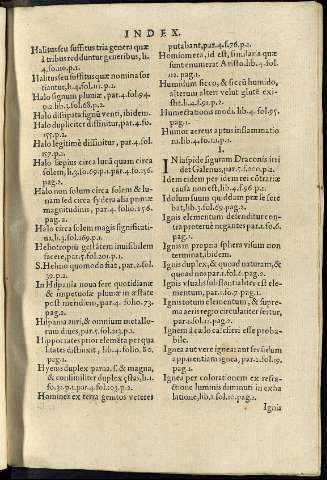 INDEX.
Halitus seu suffitus tria genera quæ
à tribus redduntur generibus, li.
4. fo.110.p.1.
Halitus seu suffitus quæ nomina sor
tiantur, li.4.fol.111.p.1.
Halo signum pluuiæ, par.4.fol.94.
p.2.lib.3.fol.68.p.2.
Halo dissipata signū venti, ibidem.
Halo dupliciter diffinitur, par.4.fo.
155.p.2.
Halo legitimè diffinitur, par.4.fol.
157.p.1.
Halo sæpius circa lunā quam circa
solem, li.3.fo.69.p.1.par.4.fo.156.
pag.2.
Halo non solum circa solem & lu-
nam sed circa sydera alia primæ
magnitudinis, par.4.folio.156.
pag.2.
Halo circa solem magis significati-
na, li.3.fol.169.p.1.
Heliotropiū gestatem inuisibilem
facere, par.5.fol.201.p.1.
S. Helmo quomodo fiat, par.2.fol.
32.p.2.
In Hispania noua fere quotidianè
& impetuosæ pluuiæ in æstate
post meridiem, par.4. folio.73.
pag.2.
Hispania auri, & omnium metallo-
rum diues, par.5.fol.213.p.1.
Hippocrates prior elemēta per qua
litates distinxit, lib.4. folio, 80.
pag.2.
Hyems duplex parua.s. & magna,
& consimiliter duplex ęstas, li.1.
fo.31.p.1.par.4.fol.103.p.2.
Homines ex terra genitos veteres
putabant, par.4.f.76.p.1.
Homiomera, id est, similaria quæ
sunt enumerat Aristo.lib.4.fol.
112.pag.1.
Humidum sicco, & siccū humido,
alterum alteri velut glutē exi-
stit.li.4.f.92.p.2.
Humectationis modi.lib.4.fol.95.
pag.1.
Humor aereus aptus inflammatio
ni.lib.4.fo.110.p.1.
I.
IN iaspide figuram Draconis irri
det Galenus, par.5.f.200.p.2.
Idem eidem per idem rei cōtrariæ
causa non est, lib.4.f.96.p.1.
Idolum suum quiddam præ se fere
bat, lib.3.fol.69.pag.2.
Ignis elementum defenditur con-
tra proteruè negantes par.1.fo.6.
pag.1.
Ignis in propria sphera visum non
terminat, ibidem.
Ignis duplex, & quod naturam, &
quoad nos par.1.fol.6.pag.2.
Ignis vsualis substātialiter est ele-
mentum, par.1.fo.7.pag.1.
Ignis totum elementum, & supre-
ma aeris regio circulariter fertur,
par.1.fol.11.pag.2.
Ignem à cælo calefieri esse proba-
bile.
Ignea aut verè ignea: aut secūdum
apparentiam ignea, par.2.fol.19.
pag.1.
Ignea per colorationem ex refra-
ctione luminis diminuti in exha
latione, lib.1.fol.10.pag.1.
Ignis